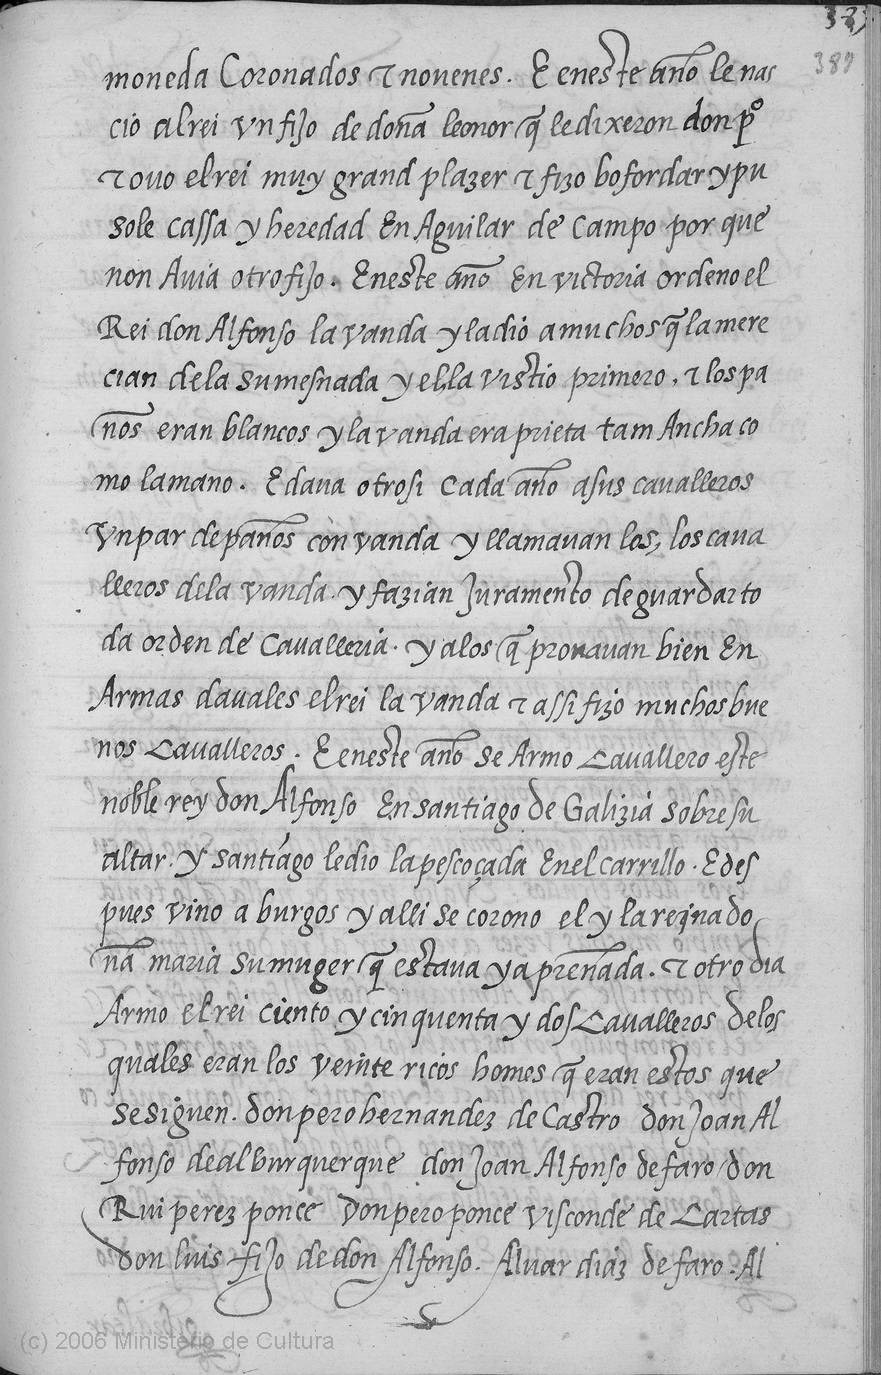 389
moneda Coronados τ novenes. E eneste año le nas
cio al rei vn fijo de doña leonor q̃ le dixeron don pº
τ ovo el rei muy grand plazer τ fizo bofordar y pu
sole cassa y heredad En Aguilar de Campo por que
non Avia otro fijo. Eneste año En victoria ordeno el
Rei don Alfonso la vanda y la dio a muchos q̃ la mere
cian de la su mesnada y el la vistio primero. τ los pa
ños eran blancos y la vanda era prieta tam Ancha co
mo la mano. E dava otrosi cada año a sus cavalleros
vn par de paños con vanda y llamavan los, los cava
lleros de la vanda. y fazian juramento de guardar to
da orden de Cavalleria. y a los q̃ provavan bien En
Armas davales el rei la vanda τ assi fizo muchos bue
nos Cavalleros. E eneste año se Armo Cavallero este
noble rey don Alfonso En santiago de Galizia sobre su
altar. y santiago le dio la pescoçada En el carrillo. E des
pues vino a burgos y alli se corono el y la reijna do
ña maria su muger q̃ estava ya preñada. τ otro dia
Armo el rei ciento y cinquenta y dos Cavalleros de los
quales eran los veinte ricos homes q̃ eran estos que
se siguen. don pero hernandez de Castro don Joan Al
fonso de alburquerque don Joan Alfonso de faro don
Rui perez ponce Don pero ponce visconde de Cartas
don luis fijo de don Alfonso. Alvar diaz de faro. Al
(c) 2006 Ministerio de Cultura